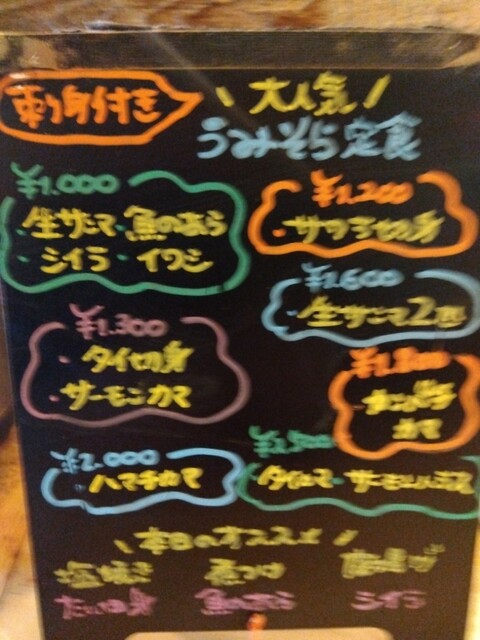 刺身付き
大人気
うみそら定食
¥1.000
・生サンマ・魚のあら
・シイラ・イワシ
¥1.200
・サワラ切身
¥1.600
・生サンマ2匹
¥1.300
・タイ切身
・サーモンカマ
¥1.800
カマ
¥2.000
・ハマチカマ
¥2,500
本日のオススメ
塩焼き 煮つけ 唐揚げ
魚のあら シイラ